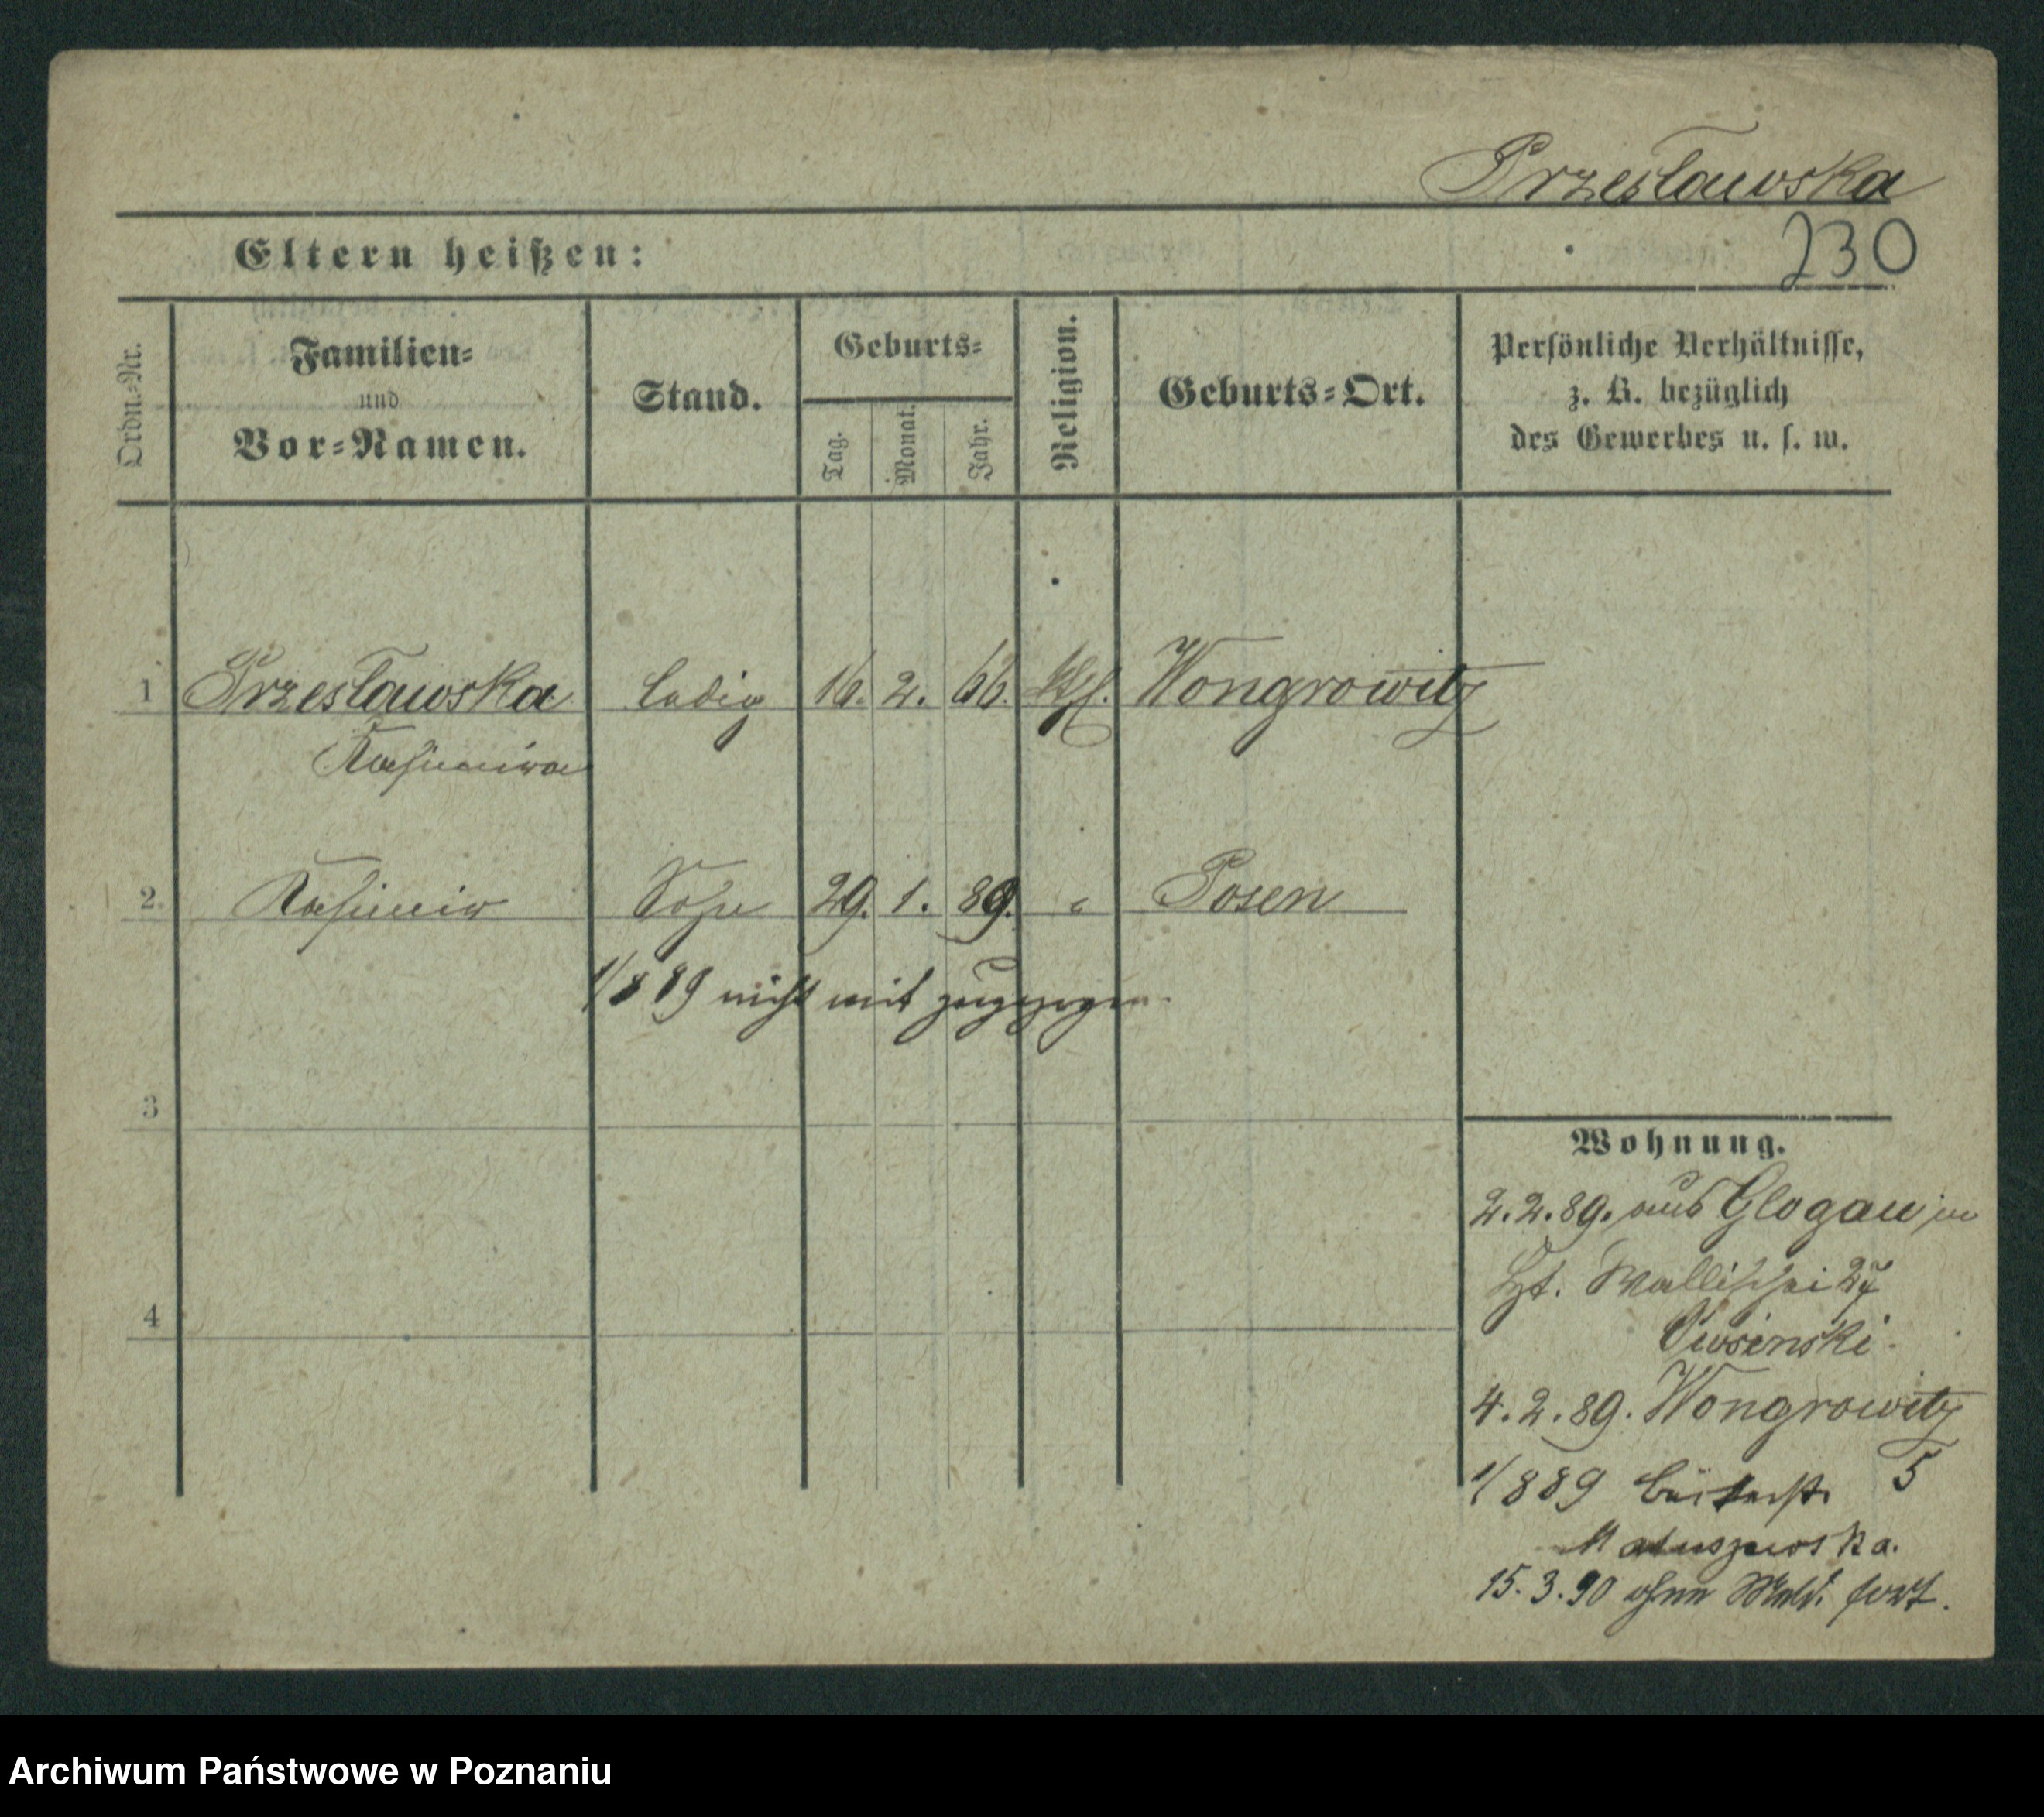 Przesławska
230
Eltern heißen:
Ordn.=Nr.
Familien=
und
Vor=Namen.
Stand.
Geburts=
Tag.
Monat.
Jahr.
Religion.
Geburts=Ort.
Persönliche Verhältnisse,
z. B. bezüglich
des Gewerbes u. s. w.
1 Przesławska ledig 16. 2. 66. Kth. Wongrowitz
Kasimira
2. Kasimir Sohn 29. 1. 89. " Posen
1/8 89 nicht mit zugezogen.
3
4
Wohnung.
2.2.89. aus Glogau in
Wallischei 27
4.2.89. Wongrowitz
1/8 89 5
Matuszewska.
15.3.90 ohne Meld. fort.
Archiwum Państwowe w Poznaniu